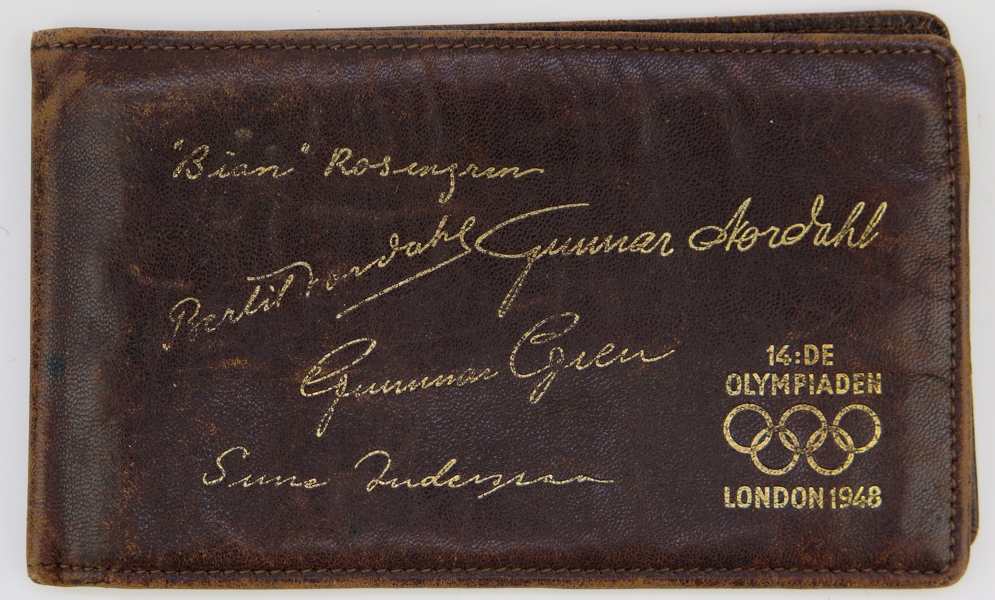 "Bian" Rosengren
Gunnar Nordahl
Bertil Nordahl
Gunnar Gren
Sune Andersson
14:DE
OLYMPIADEN
LONDON 1948